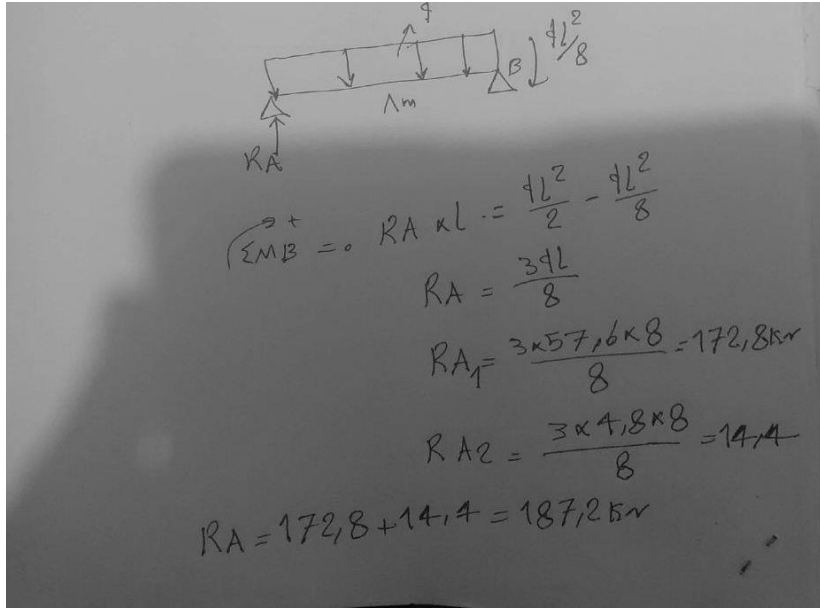 q
qL²/8
B
8m
RA
ΣMB = 0 + RA × L = qL²/2 - qL²/8
RA = 3qL/8
RA1 = 3×57,6×8/8 = 172,8 KN
RA2 = 3×4,8×8/8 = 14,4
RA = 172,8 + 14,4 = 187,2 KN